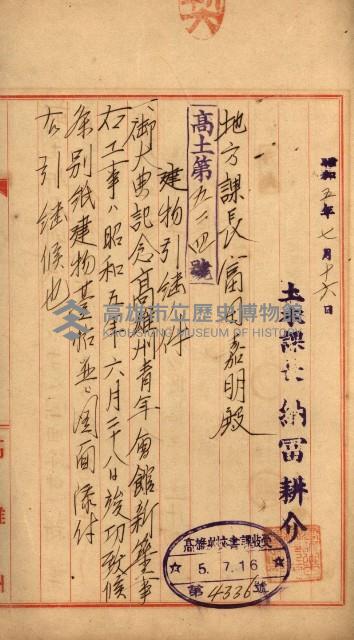 昭和五年七月十六日
土木課長 納富耕介
地方課長 富 嘉明殿
高土第五二四號
建物引継ノ件
一、御大典記念高雄州青年會館新築工事
右工事ハ昭和五年六月二十八日竣功致候
條別紙建物臺帳並ニ圖面添付
右引継候也
高雄市立歷史博物館
KAOHSIUNG MUSEUM OF HISTORY
高雄州文書課收受
5. 7. 16
第4336號
高雄州